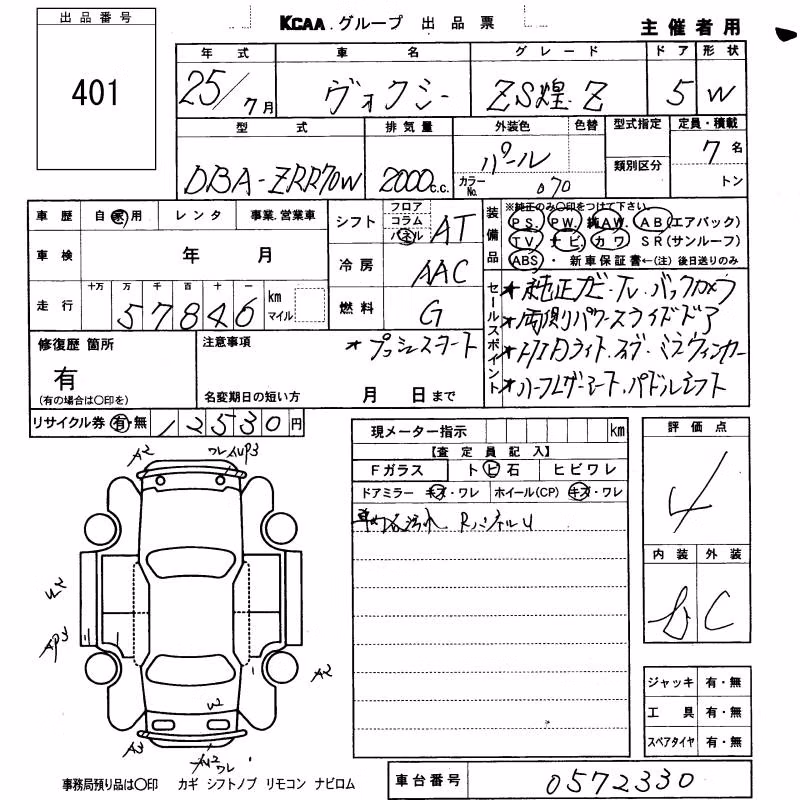 出品番号
401
KCAA.グループ 出品票
主催者用
年式 車名 グレード ドア 形状
25/7月 ヴォクシー ZS煌Z 5 W
型式 排気量 外装色 色替 型式指定 定員・積載
DBA-ZRR70W 2000c.c. パール 類別区分 7名
カラーNo. 070 トン
車歴 自家用 レンタ 事業.営業車
シフト フロア コラム パネル AT
車検 年 月
冷房 AAC
走行 十万 万 千 百 十 一
57846 km マイル
燃料 G
装備品 ※純正のみ〇印をつけて下さい。
PS. PW. 純AW. AB(エアバック)
TV. ナビ. カワ SR(サンルーフ)
ABS・ 新車保証書←(注)後日送りのみ
セールスポイント
★純正ナビ・TV.バックカメラ
★両側パワースライドドア
★HIDライト.フォグ・ミラーウィンカー
★ハーフレザーシート.パドルシフト
修復歴 箇所
有
(有の場合は〇印を)
注意事項
★プッシュスタート
名変期日の短い方 月 日まで
リサイクル券 有・無 12530円
現メーター指示 km
【査定員記入】
Fガラス トビ石 ヒビワレ
ドアミラー キズ・ワレ ホイール(CP) キズ・ワレ
RパネルU
評価点
4
内装 外装
C
A2
ワレ AUP3
AP3
A2
W2
A3
ワレ
ジャッキ 有・無
工具 有・無
スペアタイヤ 有・無
事務局預り品は〇印 カギ シフトノブ リモコン ナビロム
車台番号 0572330